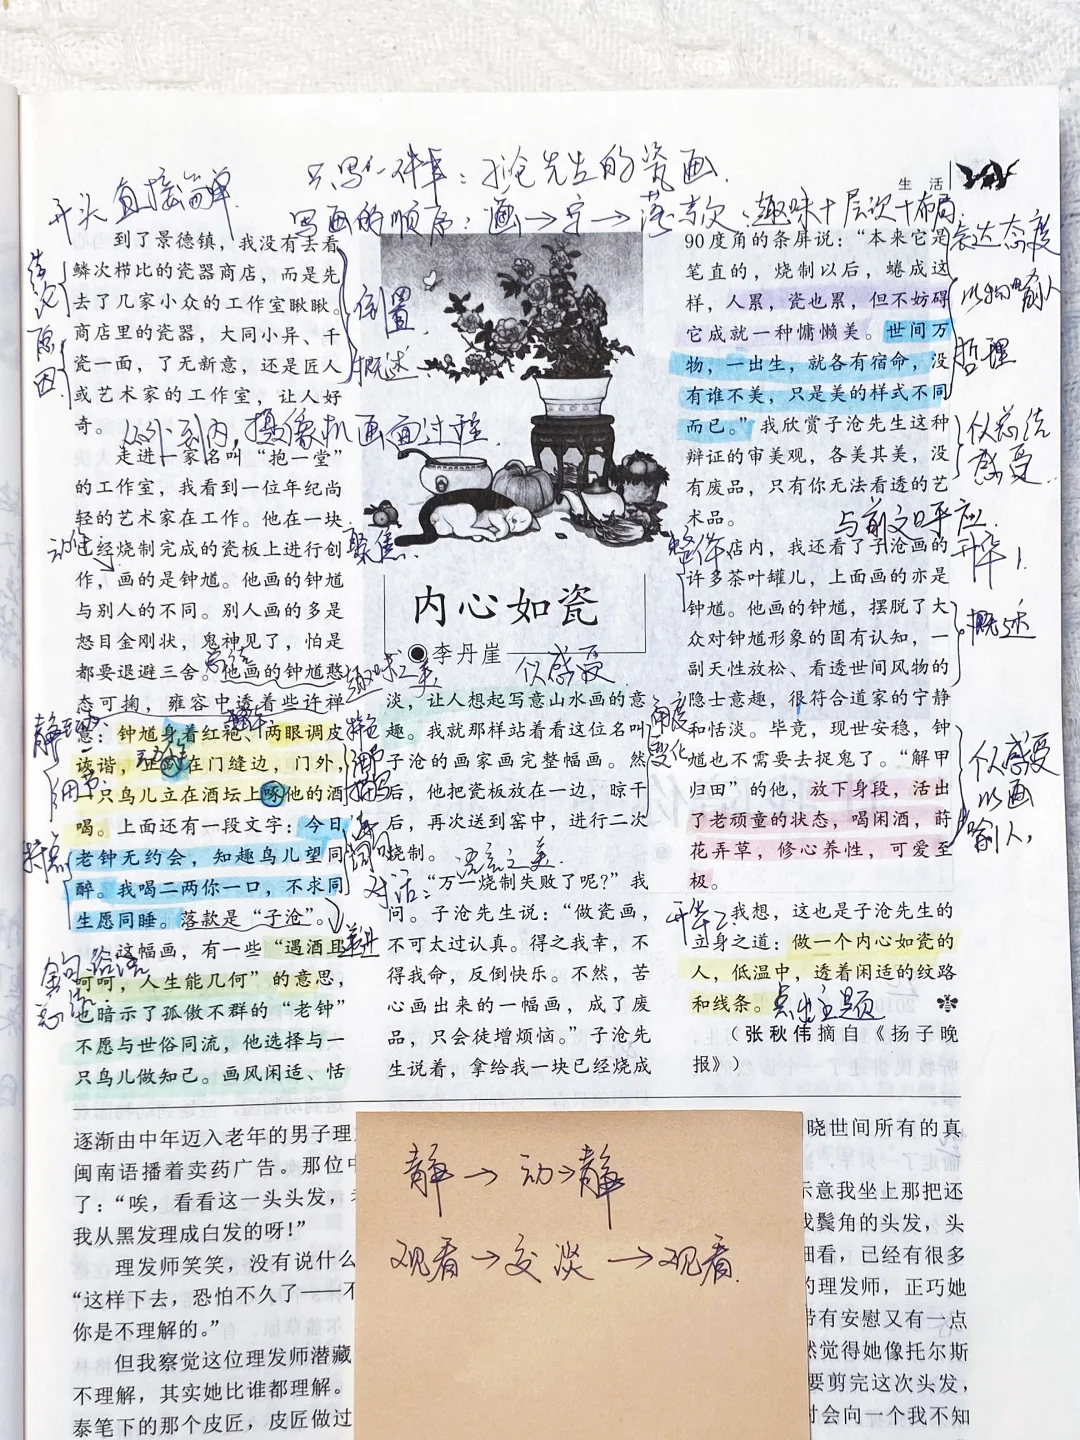 只写一件事：子沧先生的瓷画
开头直接简单
写画的顺序：画→字→落款、趣味+层次+布局
生 活
到了景德镇，我没有去看
鳞次栉比的瓷器商店，而是先
去了几家小众的工作室瞅瞅。
商店里的瓷器，大同小异、千
瓷一面，了无新意，还是匠人
或艺术家的工作室，让人好
奇。
结论
原因
倒置
概述
从外到内，摄像机画面过程
走进一家名叫“抱一堂”
的工作室，我看到一位年纪尚
轻的艺术家在工作。他在一块
已经烧制完成的瓷板上进行创
作，画的是钟馗。他画的钟馗
与别人的不同。别人画的多是
怒目金刚状，鬼神见了，怕是
都要退避三舍。他画的钟馗憨
态可掬，雍容中透着些许禅
意：钟馗身着红袍、两眼调皮
诙谐，正
在门缝边，门外，
一只鸟儿立在酒坛上啄他的酒
喝。上面还有一段文字：今日
老钟无约会，知趣鸟儿望同
醉。我喝二两你一口，不求同
生愿同睡。落款是“子沧”。
这幅画，有一些“遇酒且
呵呵，人生能几何”的意思，
也暗示了孤傲不群的“老钟”
不愿与世俗同流，他选择与一
只鸟儿做知己。画风闲适、恬
聚焦
细节
特点
金句
特色
细节
描写
内心如瓷
●李丹崖
趣味之美
似感受
淡，让人想起写意山水画的意
趣。我就那样站着看这位名叫
子沧的画家画完整幅画。然
后，他把瓷板放在一边，晾干
后，再次送到窑中，进行二次
烧制。
角度
变化
语言之美
对话：
“万一烧制失败了呢？”我
问。子沧先生说：“做瓷画，
不可太过认真。得之我幸，不
得我命，反倒快乐。不然，苦
心画出来的一幅画，成了废
品，只会徒增烦恼。”子沧先
生说着，拿给我一块已经烧成
90度角的条屏说：“本来它是
笔直的，烧制以后，蜷成这
样，人累，瓷也累，但不妨碍
它成就一种慵懒美。世间万
物，一出生，就各有宿命，没
有谁不美，只是美的样式不同
而已。”我欣赏子沧先生这种
辩证的审美观，各美其美，没
有废品，只有你无法看透的艺
术品。
表达态度
以物喻人
哲理
感受
与前文呼应
整体
店内，我还看了子沧画的
许多茶叶罐儿，上面画的亦是
钟馗。他画的钟馗，摆脱了大
众对钟馗形象的固有认知，一
副天性放松、看透世间风物的
隐士意趣，很符合道家的宁静
和恬淡。毕竟，现世安稳，钟
馗也不需要去捉鬼了。“解甲
归田”的他，放下身段，活出
了老顽童的状态，喝闲酒，莳
花弄草，修心养性，可爱至
极。
升华1
概述
似感受
以画
喻人，
升华2
我想，这也是子沧先生的
立身之道：做一个内心如瓷的
人，低温中，透着闲适的纹路
和线条。
点出主题
（张秋伟摘自《扬子晚
报》）
逐渐由中年迈入老年的男子理
闽南语播着卖药广告。那位中
了：“唉，看看这一头头发，
我从黑发理成白发的呀！”
理发师笑笑，没有说什么
“这样下去，恐怕不久了——不
你是不理解的。”
但我察觉这位理发师潜藏
不理解，其实她比谁都理解。
泰笔下的那个皮匠，皮匠做过
静→动→静
观看→交谈→观看
晓世间所有的真
示意我坐上那把还
鬓角的头发，头
细看，已经有很多
的理发师，正巧她
带有安慰又有一点
然觉得她像托尔斯
要剪完这次头发，
时会向一个我不知